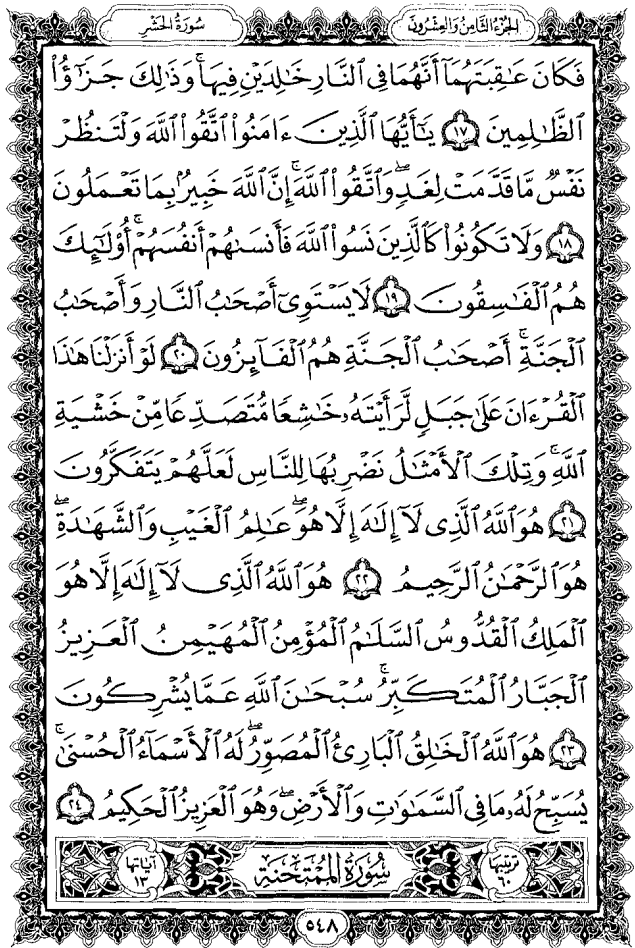 سُورَةُ الحَشْرِ
الجُزْءُ الثَّامِنُ وَالعِشْرُونَ
فَكَانَ عَٰقِبَتَهُمَآ أَنَّهُمَا فِى ٱلنَّارِ خَٰلِدَيْنِ فِيهَا ۚ وَذَٰلِكَ جَزَٰٓؤُا۟
ٱلظَّٰلِمِينَ ١٧ يَٰٓأَيُّهَا ٱلَّذِينَ ءَامَنُوا۟ ٱتَّقُوا۟ ٱللَّهَ وَلْتَنظُرْ
نَفْسٌ مَّا قَدَّمَتْ لِغَدٍ ۖ وَٱتَّقُوا۟ ٱللَّهَ ۚ إِنَّ ٱللَّهَ خَبِيرٌۢ بِمَا تَعْمَلُونَ
١٨ وَلَا تَكُونُوا۟ كَٱلَّذِينَ نَسُوا۟ ٱللَّهَ فَأَنسَىٰهُمْ أَنفُسَهُمْ ۚ أُو۟لَٰٓئِكَ
هُمُ ٱلْفَٰسِقُونَ ١٩ لَا يَسْتَوِىٓ أَصْحَٰبُ ٱلنَّارِ وَأَصْحَٰبُ
ٱلْجَنَّةِ ۚ أَصْحَٰبُ ٱلْجَنَّةِ هُمُ ٱلْفَآئِزُونَ ٢٠ لَوْ أَنزَلْنَا هَٰذَا
ٱلْقُرْءَانَ عَلَىٰ جَبَلٍ لَّرَأَيْتَهُۥ خَٰشِعًا مُّتَصَدِّعًا مِّنْ خَشْيَةِ
ٱللَّهِ ۚ وَتِلْكَ ٱلْأَمْثَٰلُ نَضْرِبُهَا لِلنَّاسِ لَعَلَّهُمْ يَتَفَكَّرُونَ
٢١ هُوَ ٱللَّهُ ٱلَّذِى لَآ إِلَٰهَ إِلَّا هُوَ ۖ عَٰلِمُ ٱلْغَيْبِ وَٱلشَّهَٰدَةِ ۖ
هُوَ ٱلرَّحْمَٰنُ ٱلرَّحِيمُ ٢٢ هُوَ ٱللَّهُ ٱلَّذِى لَآ إِلَٰهَ إِلَّا هُوَ
ٱلْمَلِكُ ٱلْقُدُّوسُ ٱلسَّلَٰمُ ٱلْمُؤْمِنُ ٱلْمُهَيْمِنُ ٱلْعَزِيزُ
ٱلْجَبَّارُ ٱلْمُتَكَبِّرُ ۚ سُبْحَٰنَ ٱللَّهِ عَمَّا يُشْرِكُونَ
٢٣ هُوَ ٱللَّهُ ٱلْخَٰلِقُ ٱلْبَارِئُ ٱلْمُصَوِّرُ ۖ لَهُ ٱلْأَسْمَآءُ ٱلْحُسْنَىٰ ۚ
يُسَبِّحُ لَهُۥ مَا فِى ٱلسَّمَٰوَٰتِ وَٱلْأَرْضِ ۖ وَهُوَ ٱلْعَزِيزُ ٱلْحَكِيمُ ٢٤
ترتيبها ٦٠
سُورَةُ المُمْتَحنَةِ
آياتها ١٣
٥٤٨